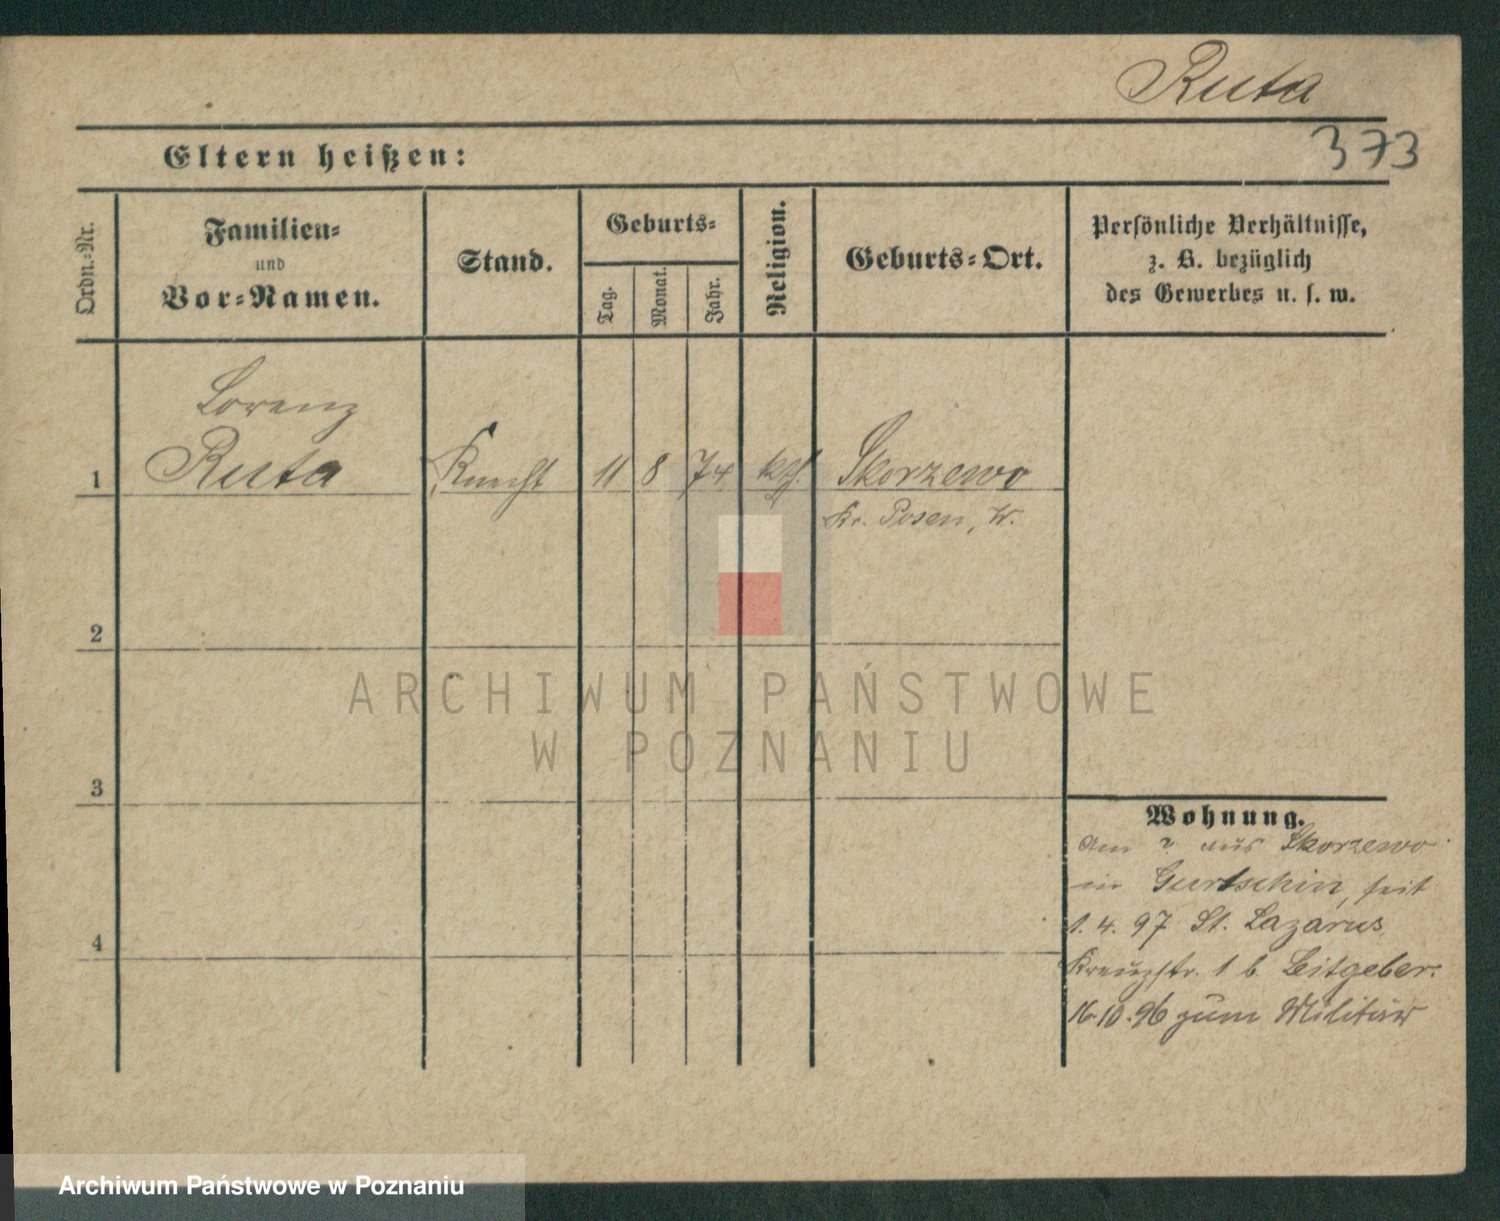 Ruta
373
Eltern heißen:
Ordn.-Nr.
Familien-
und
Vor-Namen.
Stand.
Geburts-
Tag.
Monat.
Jahr.
Religion.
Geburts-Ort.
Persönliche Verhältnisse,
z. B. bezüglich
des Gewerbes u. s. w.
Lorenz
1 Ruta Knecht 11 8 74 kth. Skorzewo
Kr. Posen, W.
2
3
4
Wohnung.
am ? aus Skorzewo
in Gurtschin, seit
1.4.97 St. Lazarus,
Kreuzstr. 1 b. Leitgeber.
16.10.96 zum Militär
ARCHIWUM PAŃSTWOWE
W POZNANIU
Archiwum Państwowe w Poznaniu